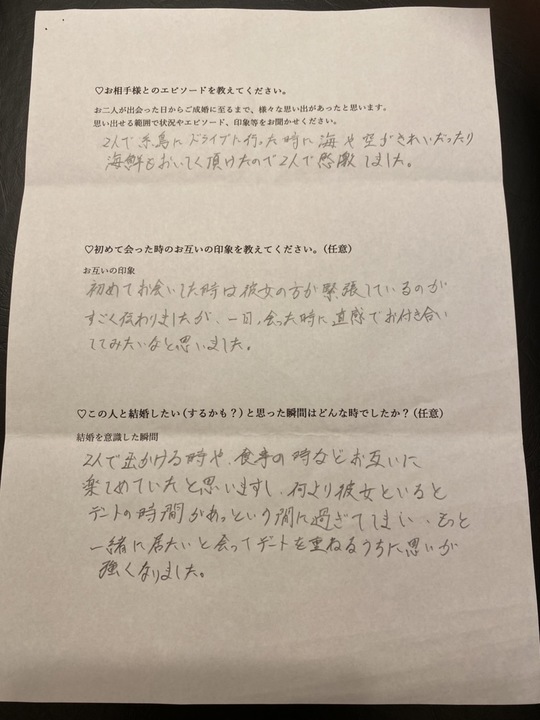 ♡お相手様とのエピソードを教えてください。
お二人が出会った日からご成婚に至るまで、様々な思い出があったと思います。
思い出せる範囲で状況やエピソード、印象等をお聞かせください。
2人で糸島にドライブに行った時に海や空がきれいだったり
海鮮もおいしく頂けたので2人で感激しました。
♡初めて会った時のお互いの印象を教えてください。(任意)
お互いの印象
初めてお会いした時は彼女の方が緊張しているのが
すごく伝わりましたが、一日、会った時に直感でお付き合い
してみたいなと思いました。
♡この人と結婚したい(するかも?)と思った瞬間はどんな時でしたか?(任意)
結婚を意識した瞬間
2人で出かける時や、食事の時などお互いに
楽しめていたと思いますし、何より彼女といると
デートの時間があっという間に過ぎてしまい、もっと
一緒に居たいと会ってデートを重ねるうちに思いが
強くなりました。